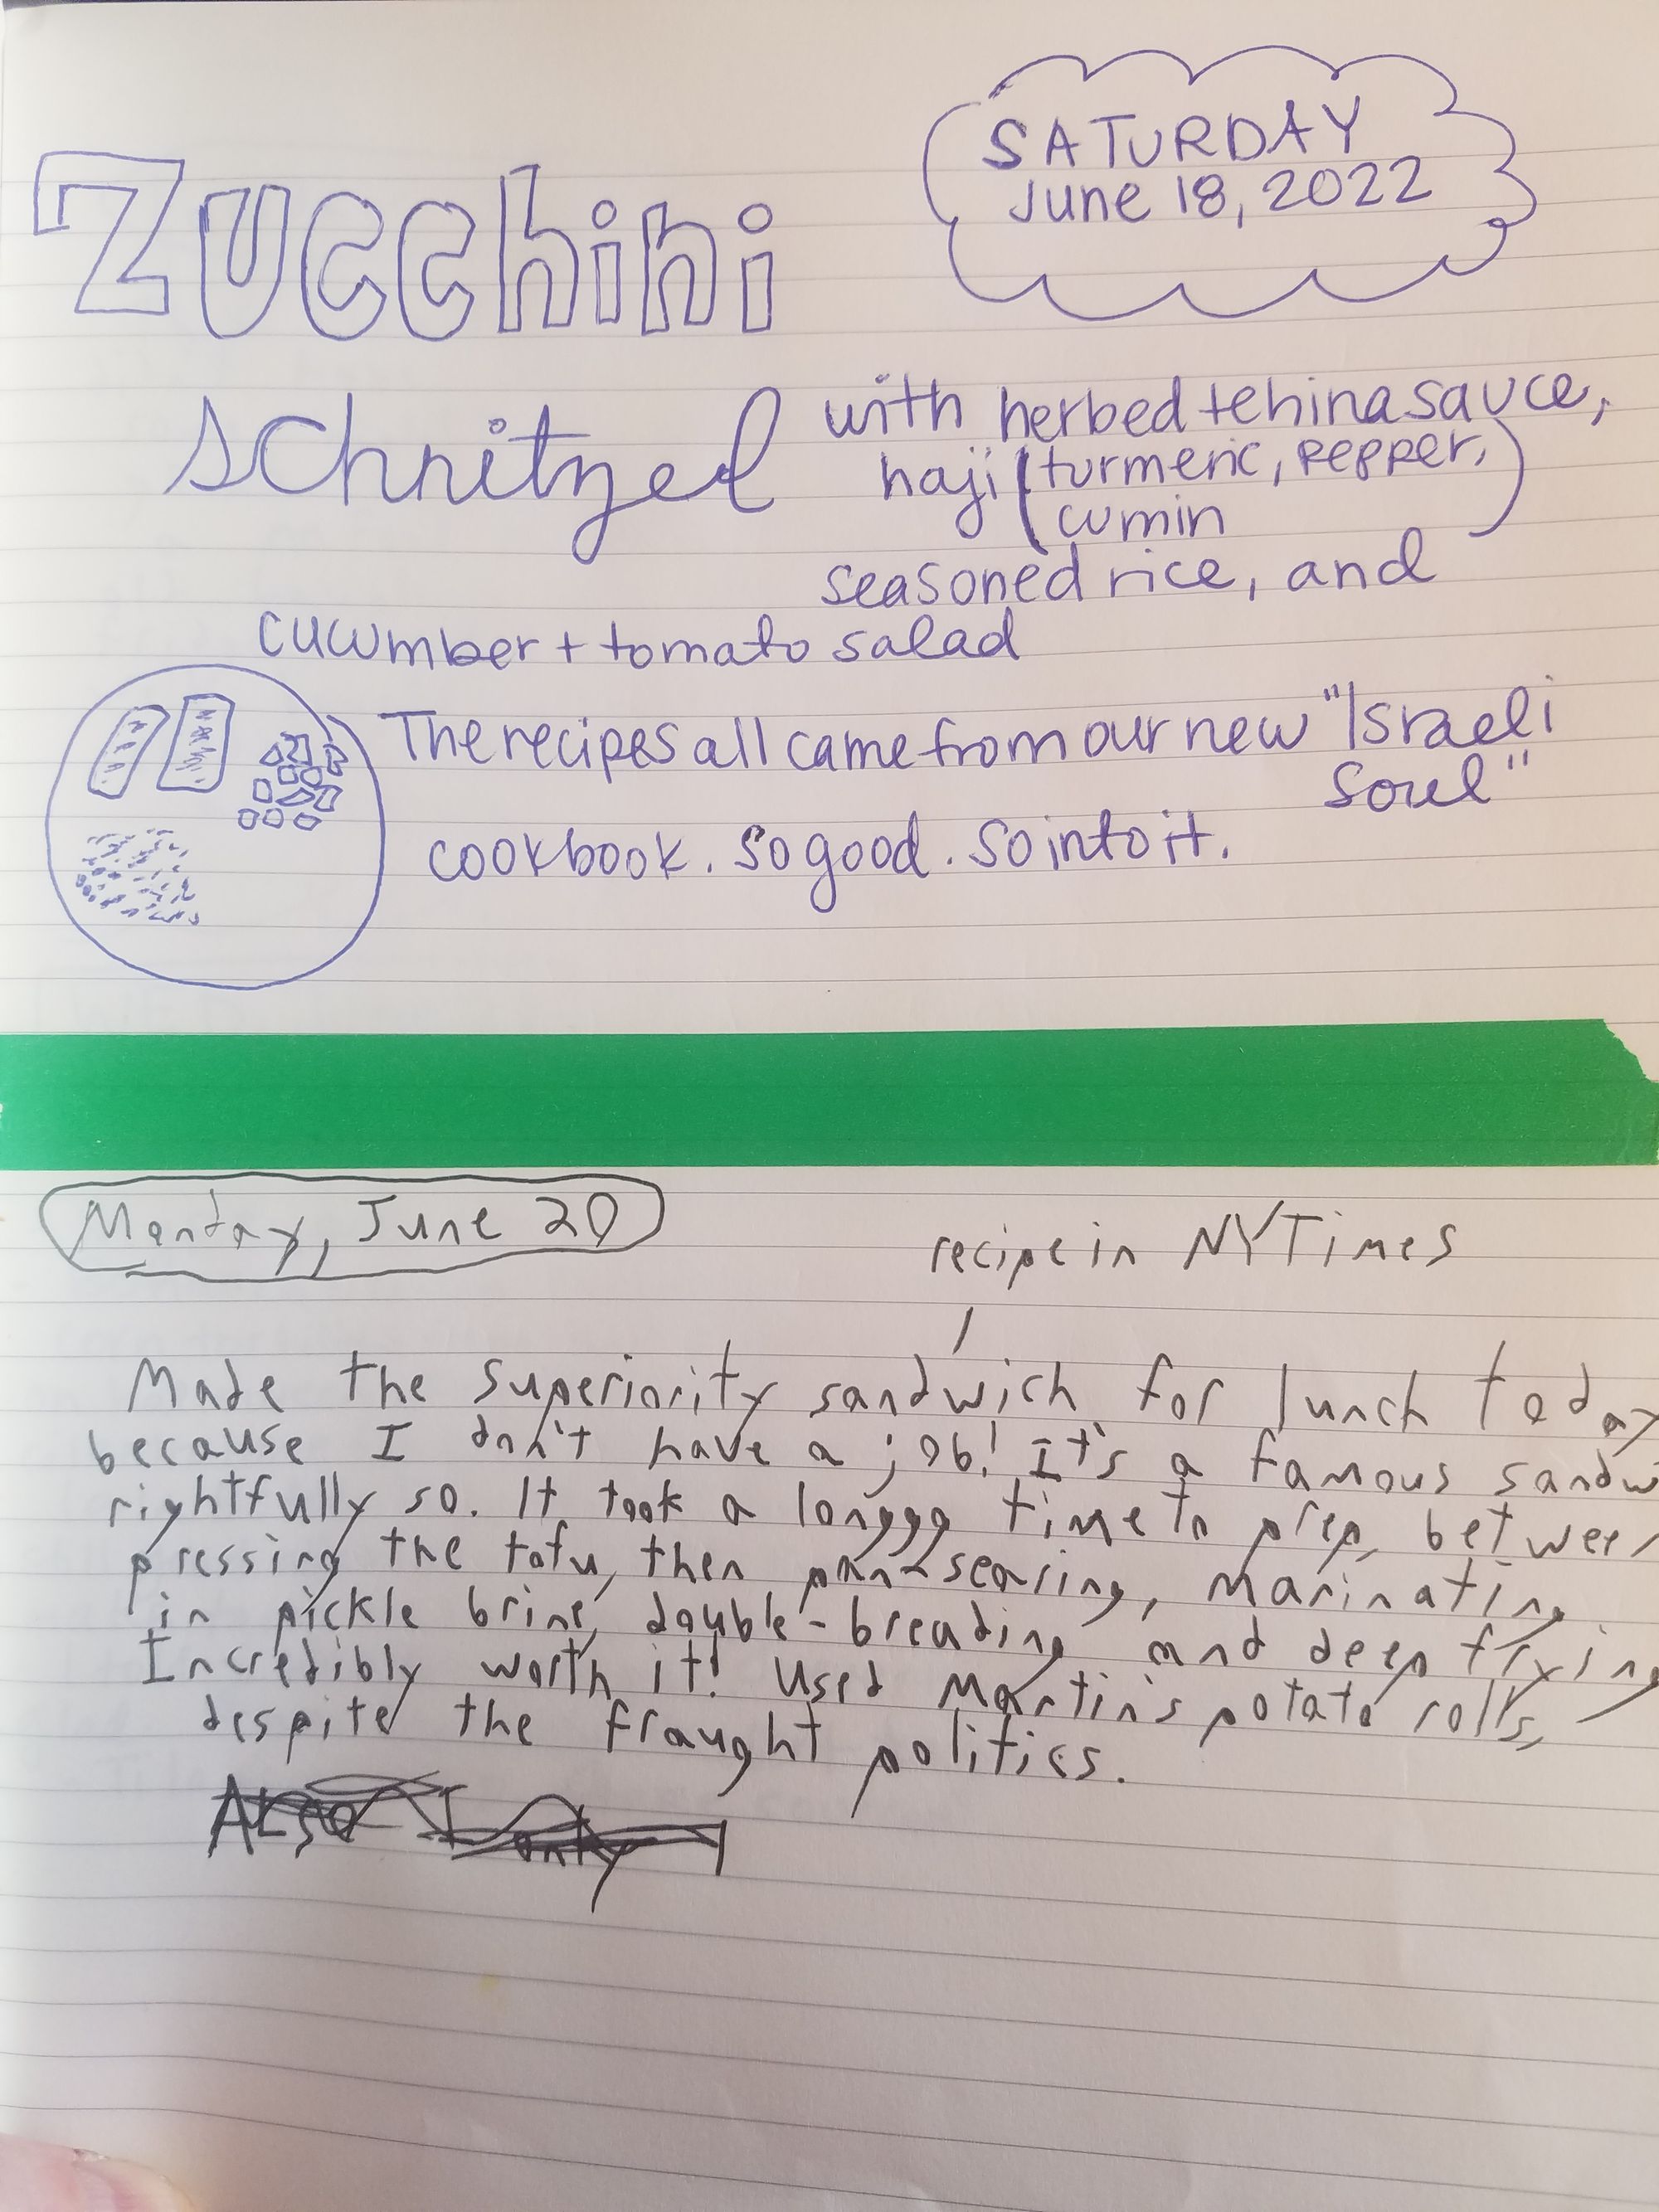 SATURDAY
June 18, 2022
Zucchini
schnitzel
with herbed tehina sauce,
haji (turmeric, pepper,
cumin)
seasoned rice, and
cucumber + tomato salad
The recipes all came from our new "Israeli
Soul"
cookbook. So good. So into it.
Monday, June 20
recipe in NYTimes
Made the superiority sandwich for lunch today
because I don't have a job! It's a famous sandw
rightfully so. It took a longgg time to prep, between
pressing the tofu, then pan-searing, marinating
in pickle brine, double-breading and deep frying
Incredibly worth it! Used Martin's potato rolls,
despite the fraught politics.
Also I only